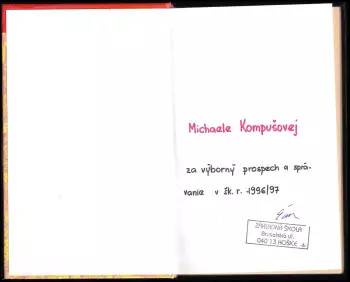 Michaele Kompušovej
za výborný prospech a sprá-
vanie v šk. r. 1996/97
ZÁKLADNÁ ŠKOLA
Bruselská ul.
040 13 KOŠICE